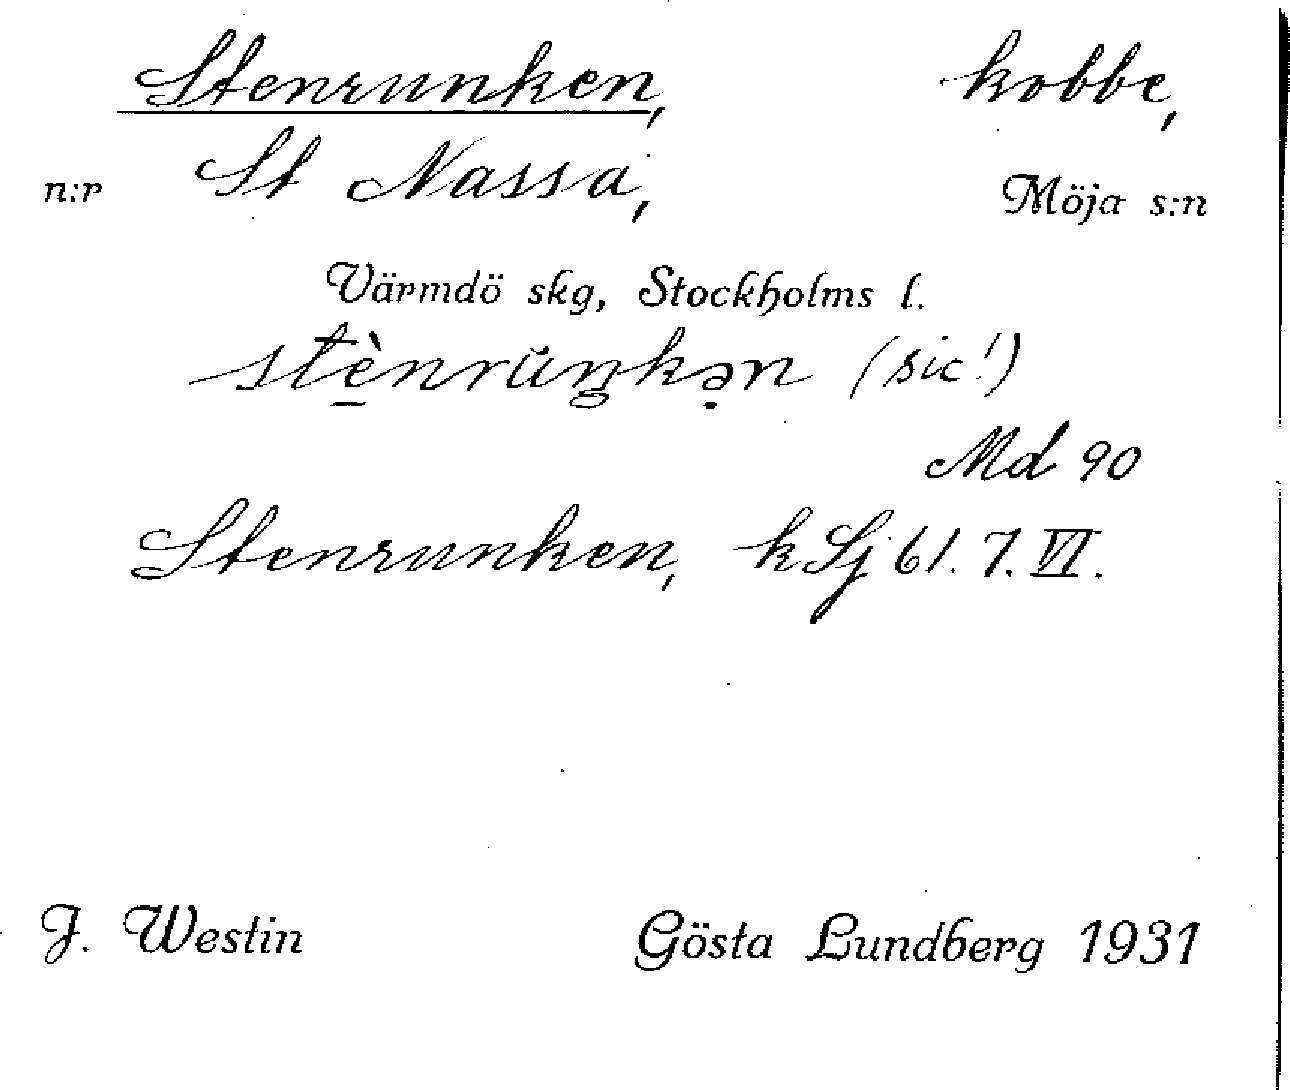 Stenrunken, kobbe,
n:r St Nassa, Möja s:n
Värmdö skg, Stockholms l.
stè̱nrŭŋkə̣n (sic!)
Md 90
Stenrunken, k Sj 61. 7. VI.
J. Westin Gösta Lundberg 1931